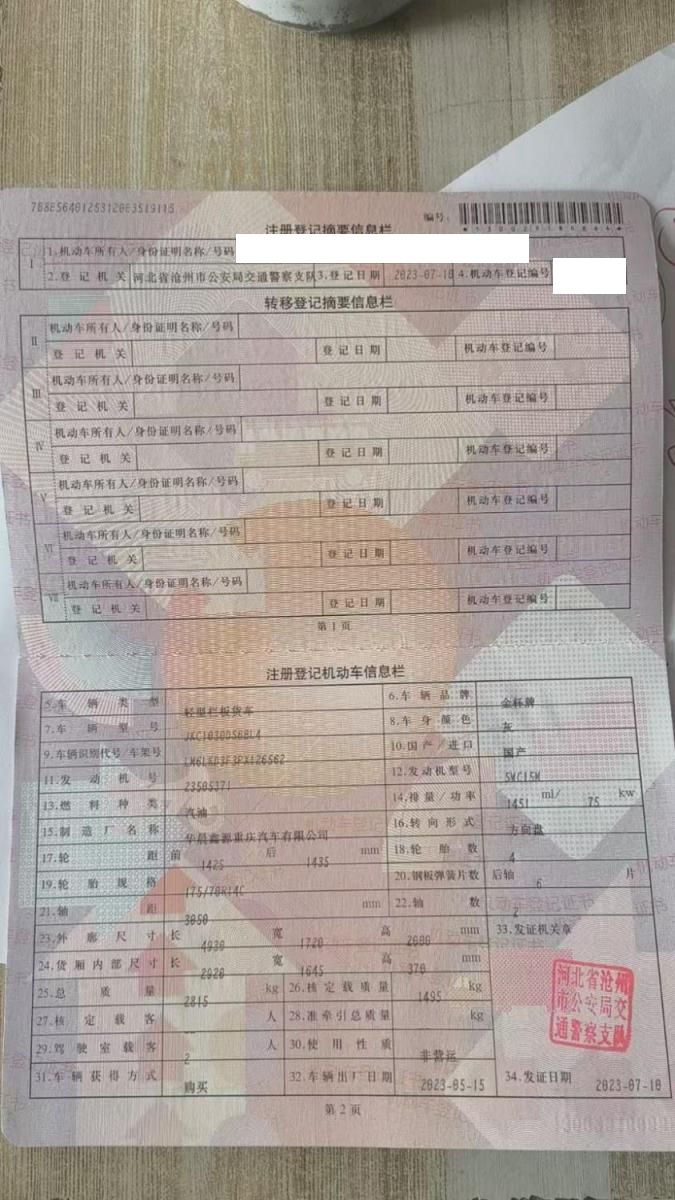 788E5640125312063519115
编号:
注册登记摘要信息栏
I
1.机动车所有人/身份证明名称/号码
2.登记机关 河北省沧州市公安局交通警察支队 3.登记日期 2023-07-10 4.机动车登记编号
转移登记摘要信息栏
II 机动车所有人/身份证明名称/号码
登记机关 登记日期 机动车登记编号
III 机动车所有人/身份证明名称/号码
登记机关 登记日期 机动车登记编号
IV 机动车所有人/身份证明名称/号码
登记机关 登记日期 机动车登记编号
V 机动车所有人/身份证明名称/号码
登记机关 登记日期 机动车登记编号
VI 机动车所有人/身份证明名称/号码
登记机关 登记日期 机动车登记编号
VII 机动车所有人/身份证明名称/号码
登记机关 登记日期 机动车登记编号
第1页
注册登记机动车信息栏
5.车辆类型 轻型栏板货车 6.车辆品牌 金杯牌
7.车辆型号 JKC1030D56BL4 8.车身颜色 灰
9.车辆识别代号/车架号 10.国产/进口 国产
11.发动机号 23505371 12.发动机型号 SWC15M
13.燃料种类 汽油 14.排量/功率 1451 ml/ 75 kw
15.制造厂名称 华晨鑫源重庆汽车有限公司 16.转向形式 方向盘
17.轮距 前 1425 后 1435 mm 18.轮胎数 4
19.轮胎规格 175/70R14C 20.钢板弹簧片数 后轴 6 片
21.轴距 3050 mm 22.轴数 2
23.外廓尺寸 长 4930 宽 1720 高 2080 mm 33.发证机关章
24.货厢内部尺寸 长 2920 宽 1645 高 370 mm
25.总质量 2815 kg 26.核定载质量 1495 kg
27.核定载客 -- 人 28.准牵引总质量 kg
29.驾驶室载客 2 人 30.使用性质 非营运
31.车辆获得方式 购买 32.车辆出厂日期 2023-05-15 34.发证日期 2023-07-10
河北省沧州
市公安局交
通警察支队
第2页